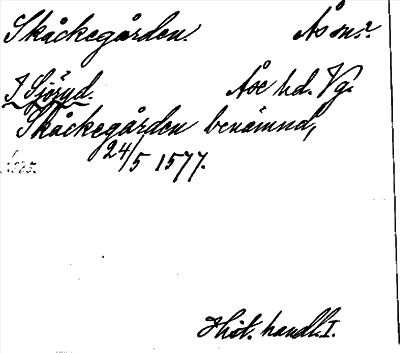 Skåckegården. Ås sn.
I Sjöryd. Åse hd. Vg.
Skåckegården benämnd,
24/5 1577.
Hist. handl. I.